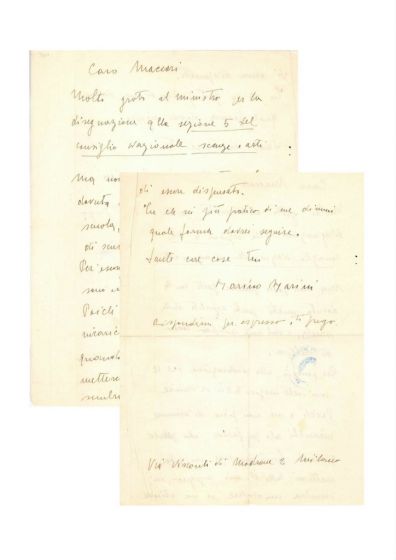 Caro Maccari
Molto grato al ministro per la
designazione alla sezione 5 del
consiglio nazionale scienze e arti
Ma non
dovuta
scuola,
di
Per
sono
Poiché
incaric
quando
metter
di essere dispensato.
Tu che sei più pratico di me, dimmi
quale forma dovrei seguire.
Tante care cose tuo
Marino Marini
Rispondimi per espresso, ti prego.
Via Visconti di Modrone 2 Milano